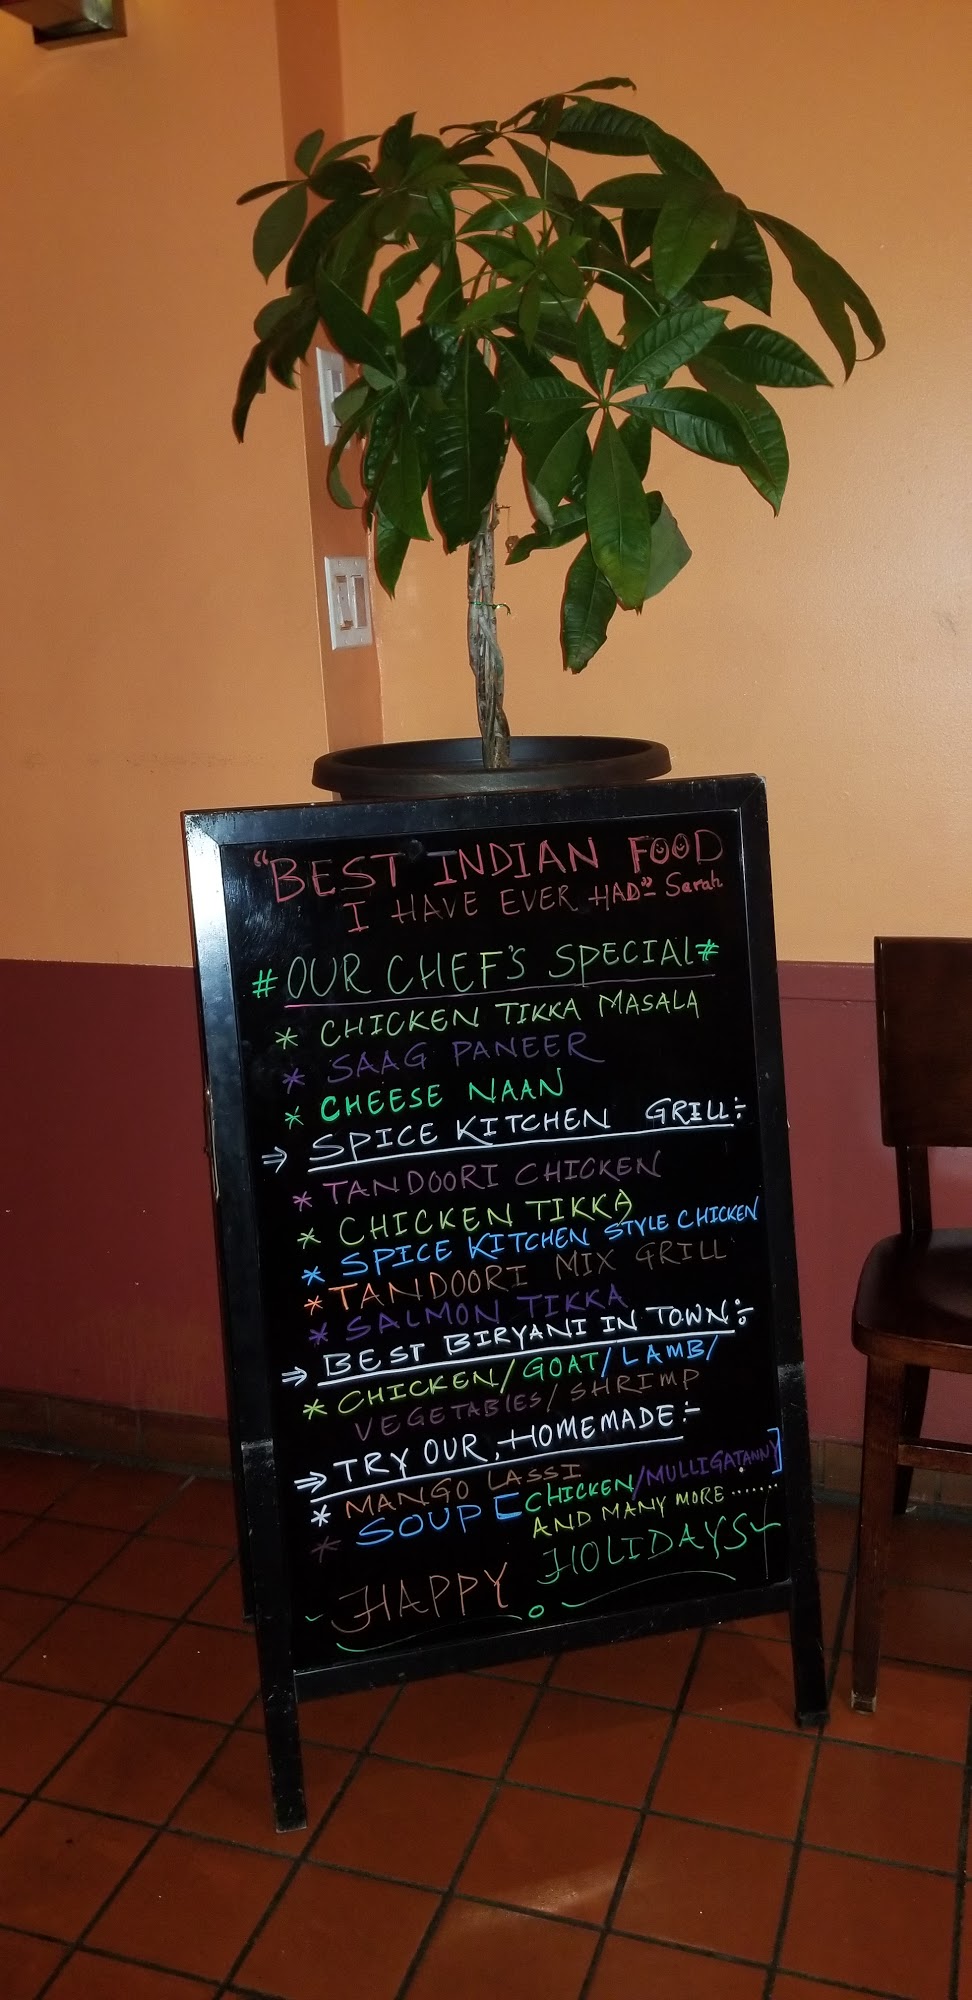 "BEST INDIAN FOOD
I HAVE EVER HAD" - Sarah
# OUR CHEF'S SPECIAL #
* CHICKEN TIKKA MASALA
* SAAG PANEER
* CHEESE NAAN
⇒ SPICE KITCHEN GRILL:-
* TANDOORI CHICKEN
* CHICKEN TIKKA
* SPICE KITCHEN STYLE CHICKEN
* TANDOORI MIX GRILL
* SALMON TIKKA
⇒ BEST BIRYANI IN TOWN:-
* CHICKEN/GOAT/LAMB/
VEGETABIES/SHRIMP
⇒ TRY OUR, HOMEMADE:-
* MANGO LASSI
* SOUP [CHICKEN/MULLIGATANNY]
AND MANY MORE .......
HAPPY HOLIDAYS